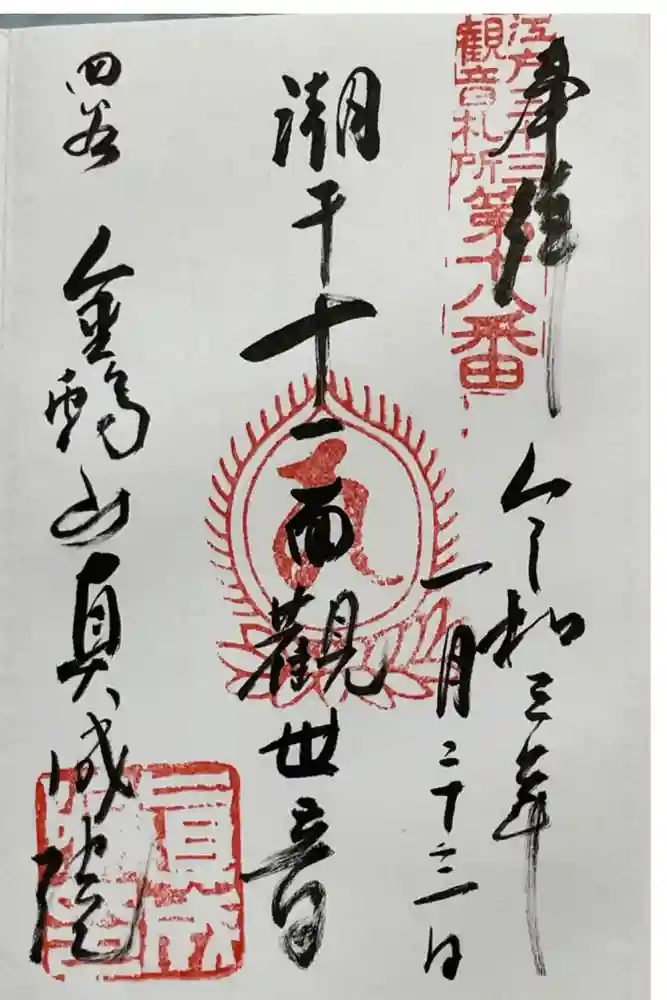 江戸三十三
観音札所
第十八番
奉拝
令和三年
一月二十三日
潮干十一面觀世音
四谷 金鶏山真成院